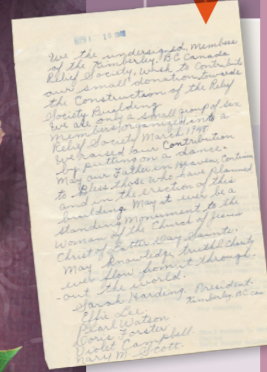 We the undersigned Members
of the Kimberley, BC Canada
Relief Society, Wish to Contribute
our small donation towards
the Construction of the Relief
Society Building
We are only a small group of six
Members, organized a
Relief Society March 1948.
We raised our Contribution
by putting on a dance.
May our Father in Heaven Continue
to Bless those who have planned
and in the erection of this
building. May it ever be a
Standing Monument to the
Woman of the Church of Jesus
Christ of Latter Day Saints.
May Knowledge, truth & Charity
ever flow from it through-
out the world.
Sarah Harding, President.
Kimberley, BC Can
Effie Lee.
Pearl Watson
Doris Forster
Violet Campbell.
Mary M. Scott.